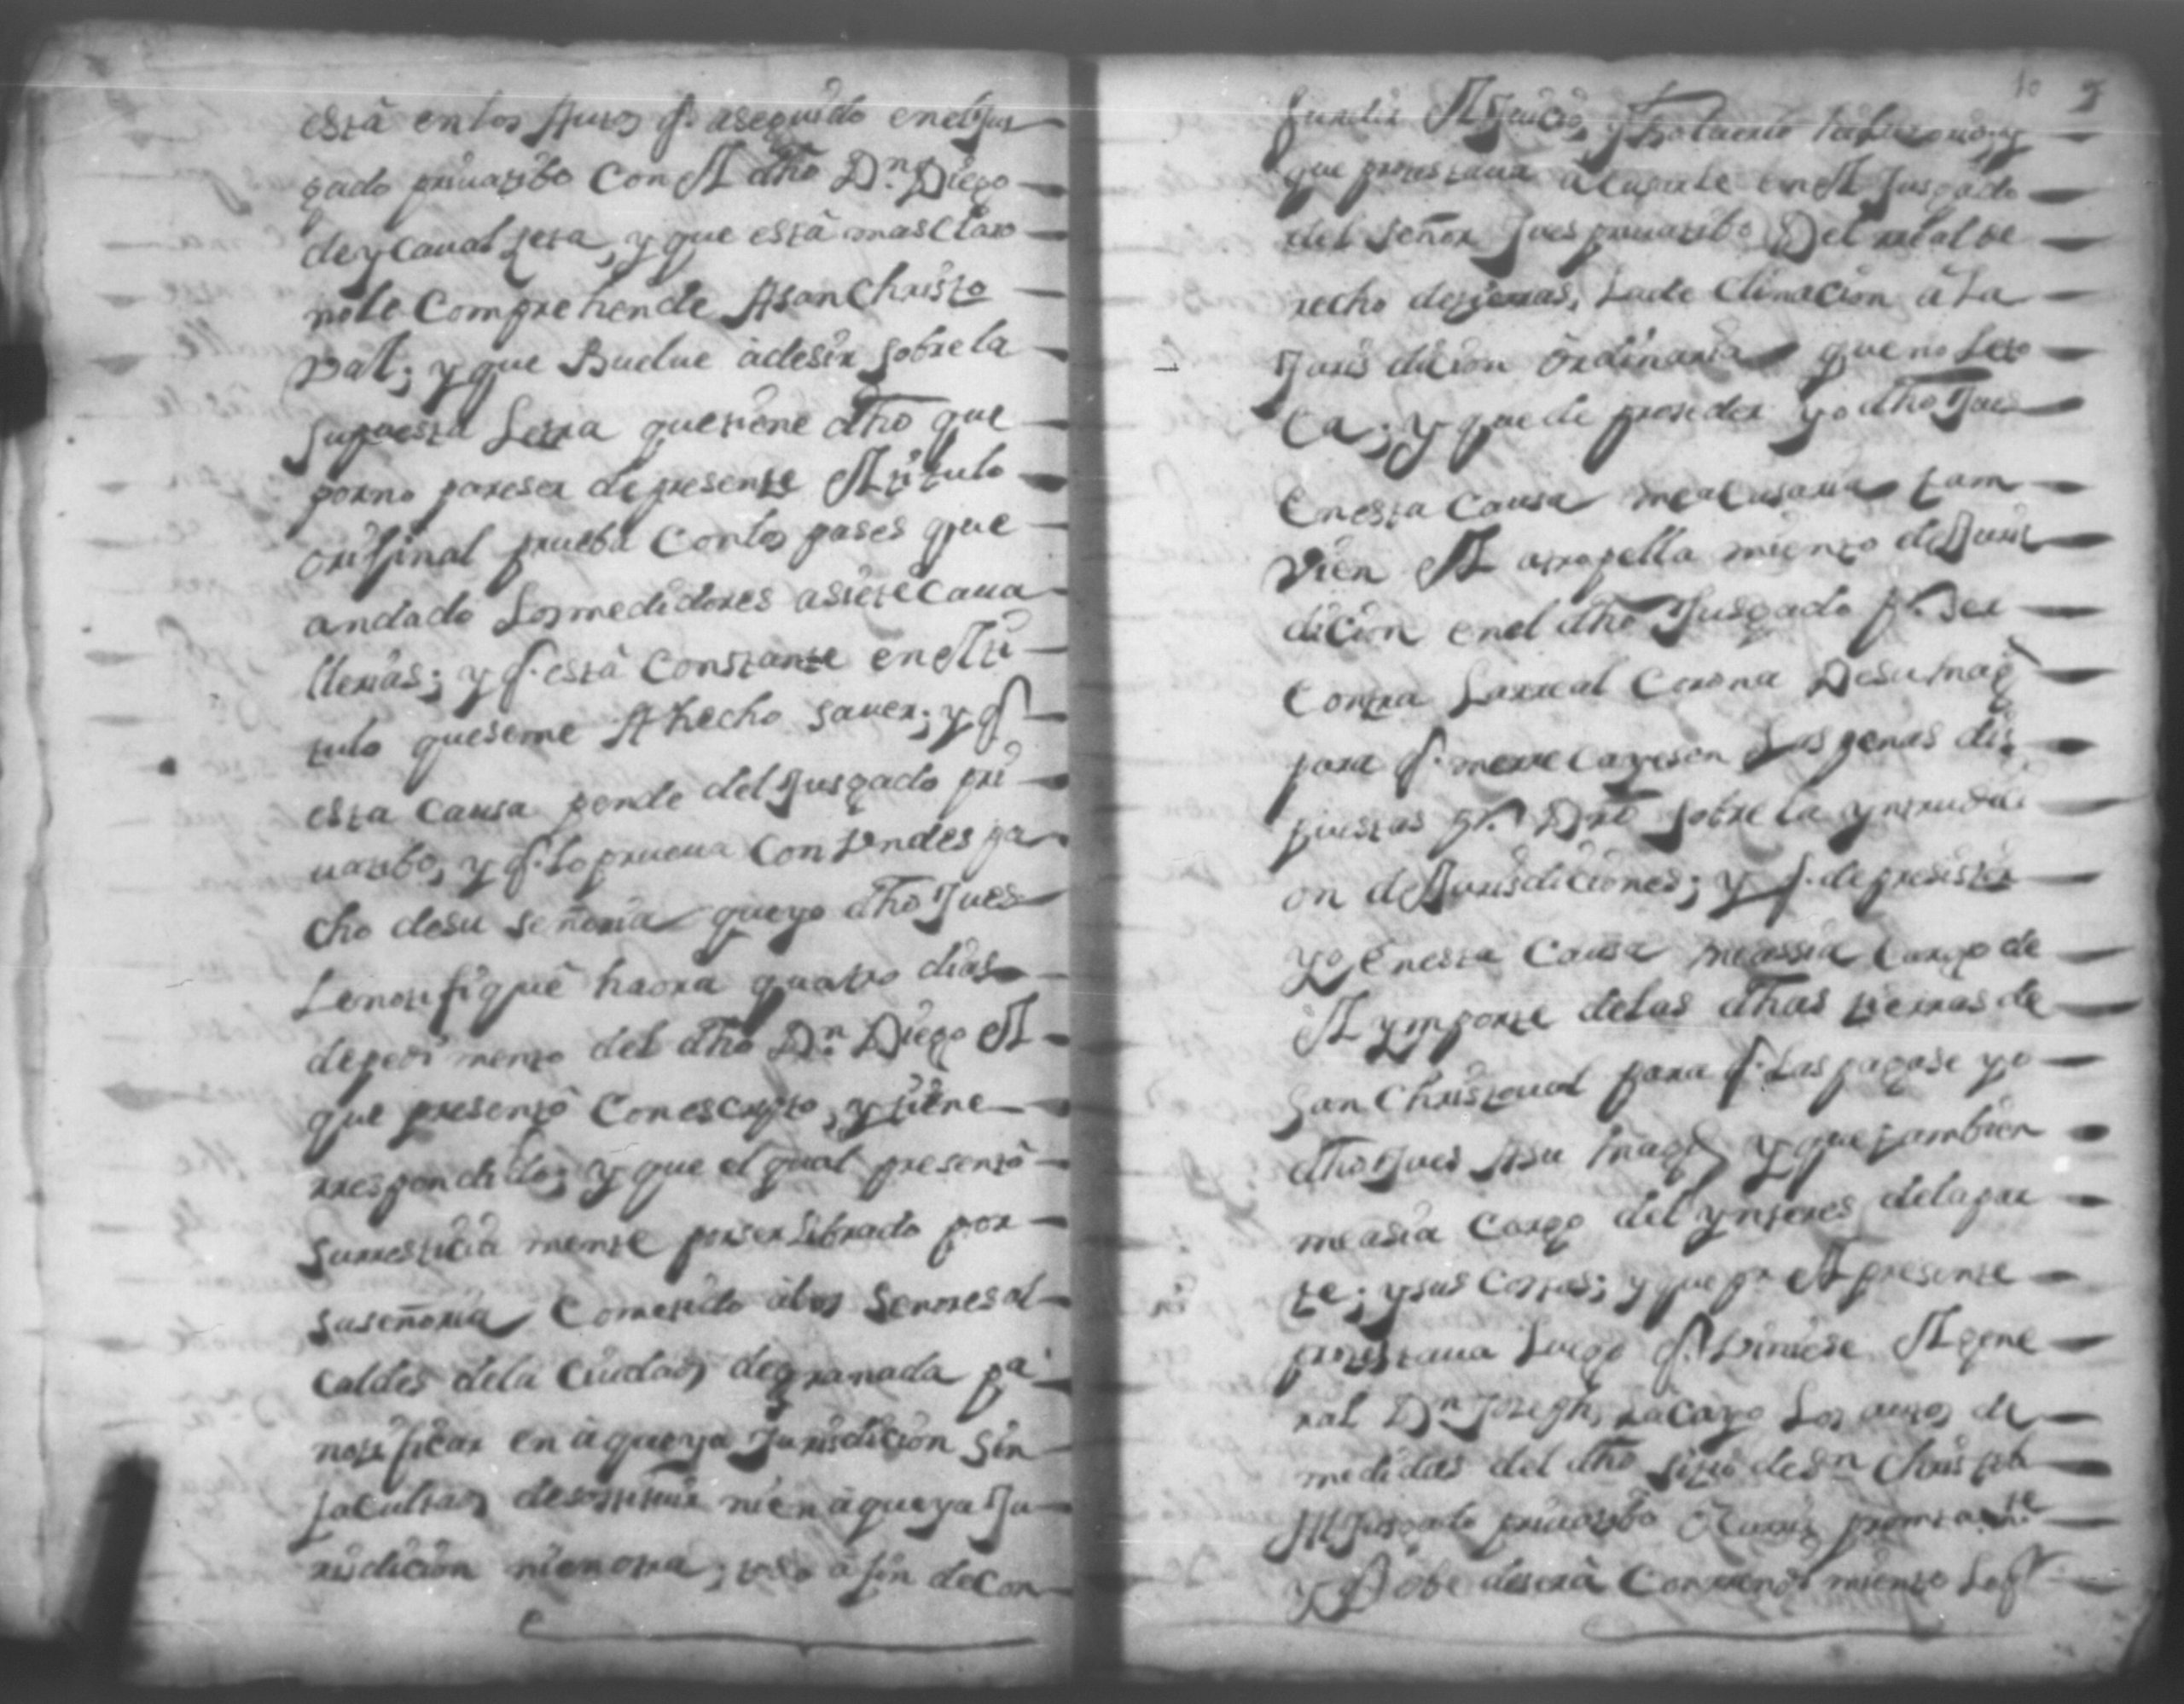 está en los Autos q.e a seguido en el Jus
gado privatibo Con El dho D.n Diego
de ycaualzeta, y que está mas Claro
no le Comprehende A san Christo
val; y que Buelue à desir sobre la
supuesta Letra que tiene dho que
por no pareser de presente El titulo
orijinal prueba Con los pases que
andado Los medidores a siete Caua
llerias; y q.e está Constante en El ti
tulo que se me A hecho sauer; y q.e
esta Causa pende del Jusgado pri
uatibo, y q.e lo prueua Con Un des pa
cho de su señoria que yo dho Jues
Le notifiqué haora quatro dias
de pedi mento del dho D.n Diego El
que presentó Con escripto, y tiene
rrespondido; y que el qual presentó
surresticia mente por ser Librado por
su señoria Cometido à los Señores al
caldes dela Ciudad de granada pa
notificar en aqueya Jurisdicion sin
facultad de ni en aqueya Ju
risdicion ni en otra; todo a fin de Con
fundir El Juicio, y
que protestaua acusarle en El Jusgado
del señor Jues privatibo Del real de
recho de tierras, La de Clinacion à La
Juris dicion ordinaria que no le to
Ca; y que de proseder yo dho Jues
En esta Causa me acusaua tam
vien El atropella miento de Juris
dicion en el dho Jusgado p.r ser
Contra La rreal Corona De su mag.d
para q.e me rrecayesen Las penas dis
puestas p.r Dro sobre la yntrudusi
on de Jurisdiciones; y q.e de presistir
yo en esta Causa me assia Cargo de
El ymporte de las dhas tierras de
san Christoual para q.e Las pagase yo
dho Jues A su mag.d y que tambien
me asia Cargo del ynteres de la par
te; y sus Costas; y que p.r el presente
protestaua Luego q.e Viniese El gene
ral D.n Joseph Lacayo Los autos de
medidas del dho sitio de S.n Christob
Al Jusgado priuatibo
y Debe de será Conosimiento